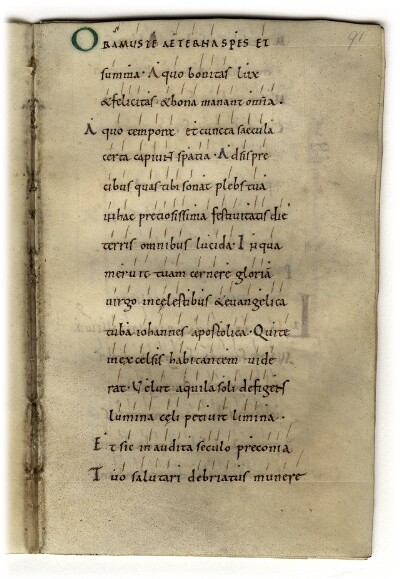 91
ORAMUS TE AETERNA SPES ET
summa · A quo bonitas lux
& felicitas & bona manant om̄ia ·
A quo tempora et cuncta saecula
certa capiunt spatia · Adsis pre
cibus quas tibi sonat plebs tua
in hac preciosissima festivitatis die
terris omnibus lucida · In qua
meruit tuam cernere gloriā
virgo in celestibus & evangelica
tuba iohannes apostolica · Qui te
in excelsis habitantem vide
rat · Velut aquila soli defigens
lumina cęli petivit limina ·
Et sic inaudita seculo preconia
Tuo salutari debriatus munere